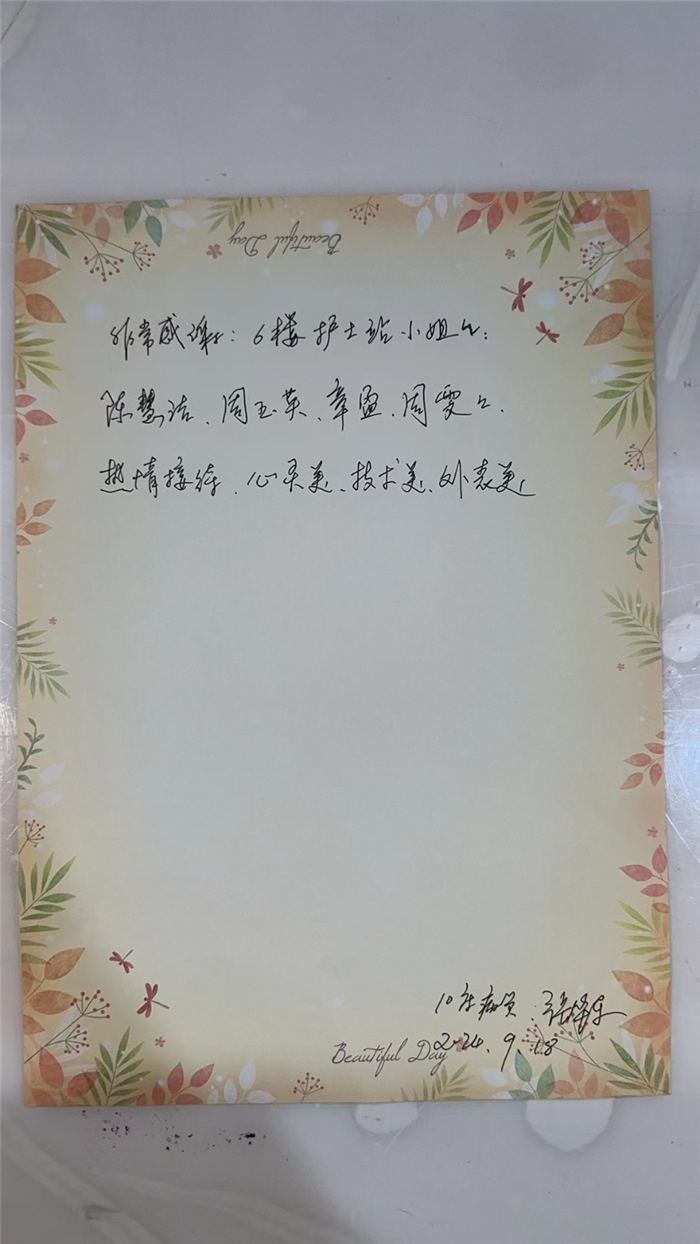 Beautiful Day
非常感谢：6楼护士站小姐々：
陈慧洁、周玉英、章盈、周雯々.
热情接待、心灵美、技术美、外表美
10床病员：
Beautiful Day
2024.9.18